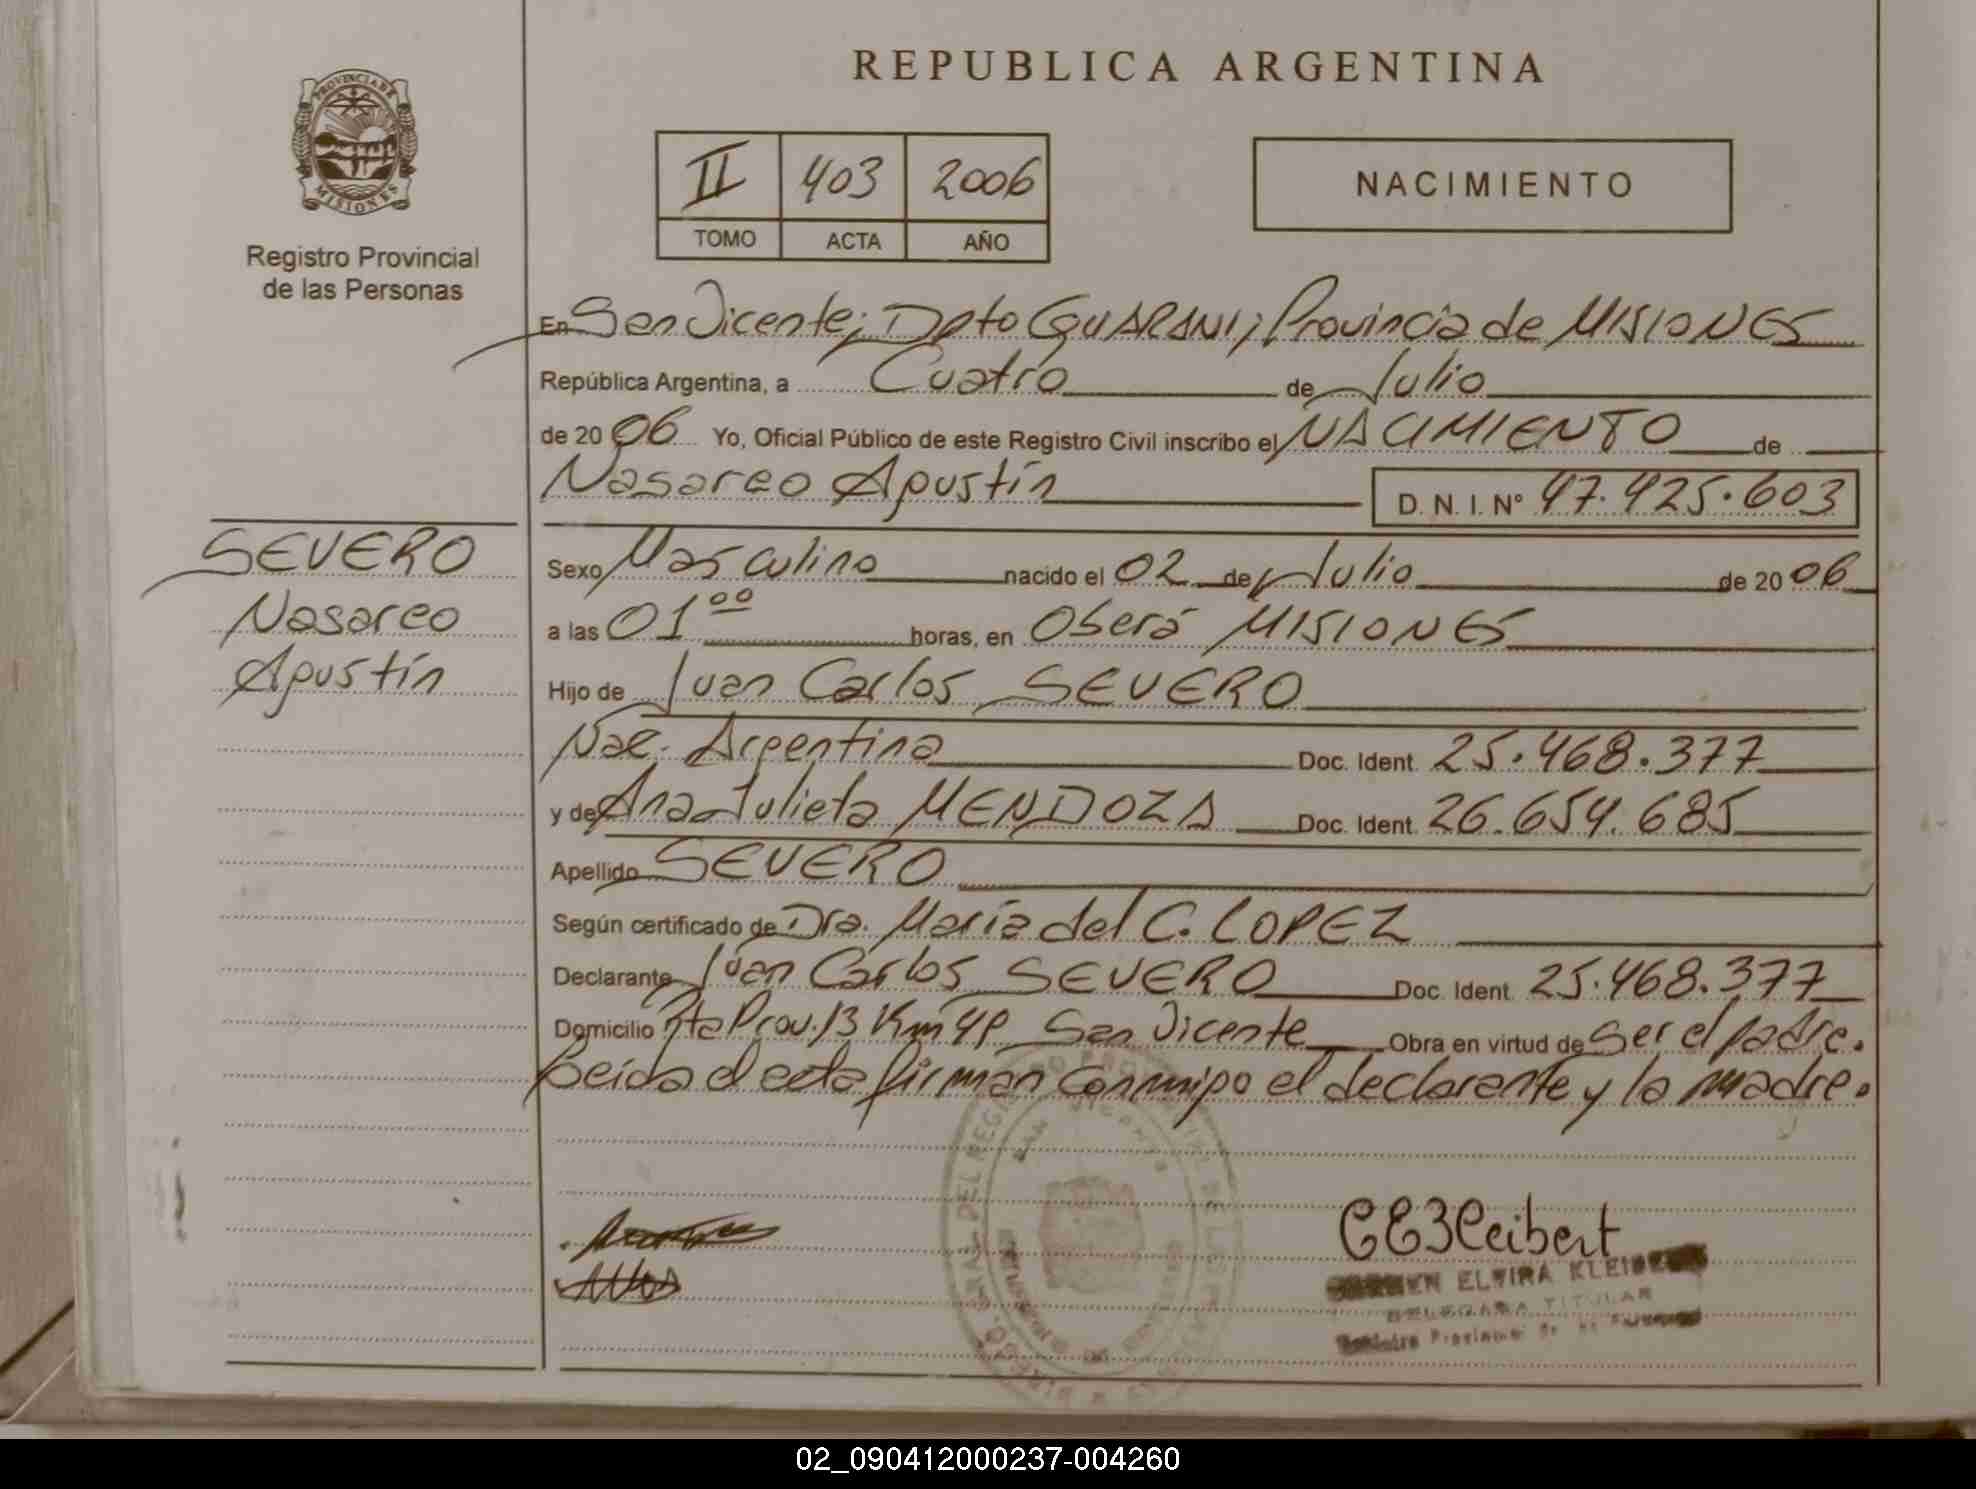 REPUBLICA ARGENTINA
PROVINCIA DE
MISIONES
Registro Provincial
de las Personas
II 403 2006
TOMO ACTA AÑO
NACIMIENTO
En San Vicente; Dpto GUARANI; Provincia de MISIONES
República Argentina, a Cuatro de Julio
de 2006 Yo, Oficial Público de este Registro Civil inscribo el NACIMIENTO de
Nasareo Agustín D. N. I. Nº 47.425.603
SEVERO
Nasareo
Agustín
Sexo Masculino nacido el 02 de Julio de 2006
a las 01 00 horas, en Oberá MISIONES
Hijo de Juan Carlos SEVERO
Nac. Argentina Doc. Ident. 25.468.377
y de Ana Julieta MENDOZA Doc. Ident. 26.654.685
Apellido SEVERO
Según certificado de Dra. María del C. LOPEZ
Declarante Juan Carlos SEVERO Doc. Ident. 25.468.377
Domicilio Rta Prov. 13 Km 49 San Vicente Obra en virtud de Ser el padre.
Leída el acta firman conmigo el declarante y la madre.
SAN VICENTE
ELVIRA
DELEGADA TITULAR
02_090412000237-004260